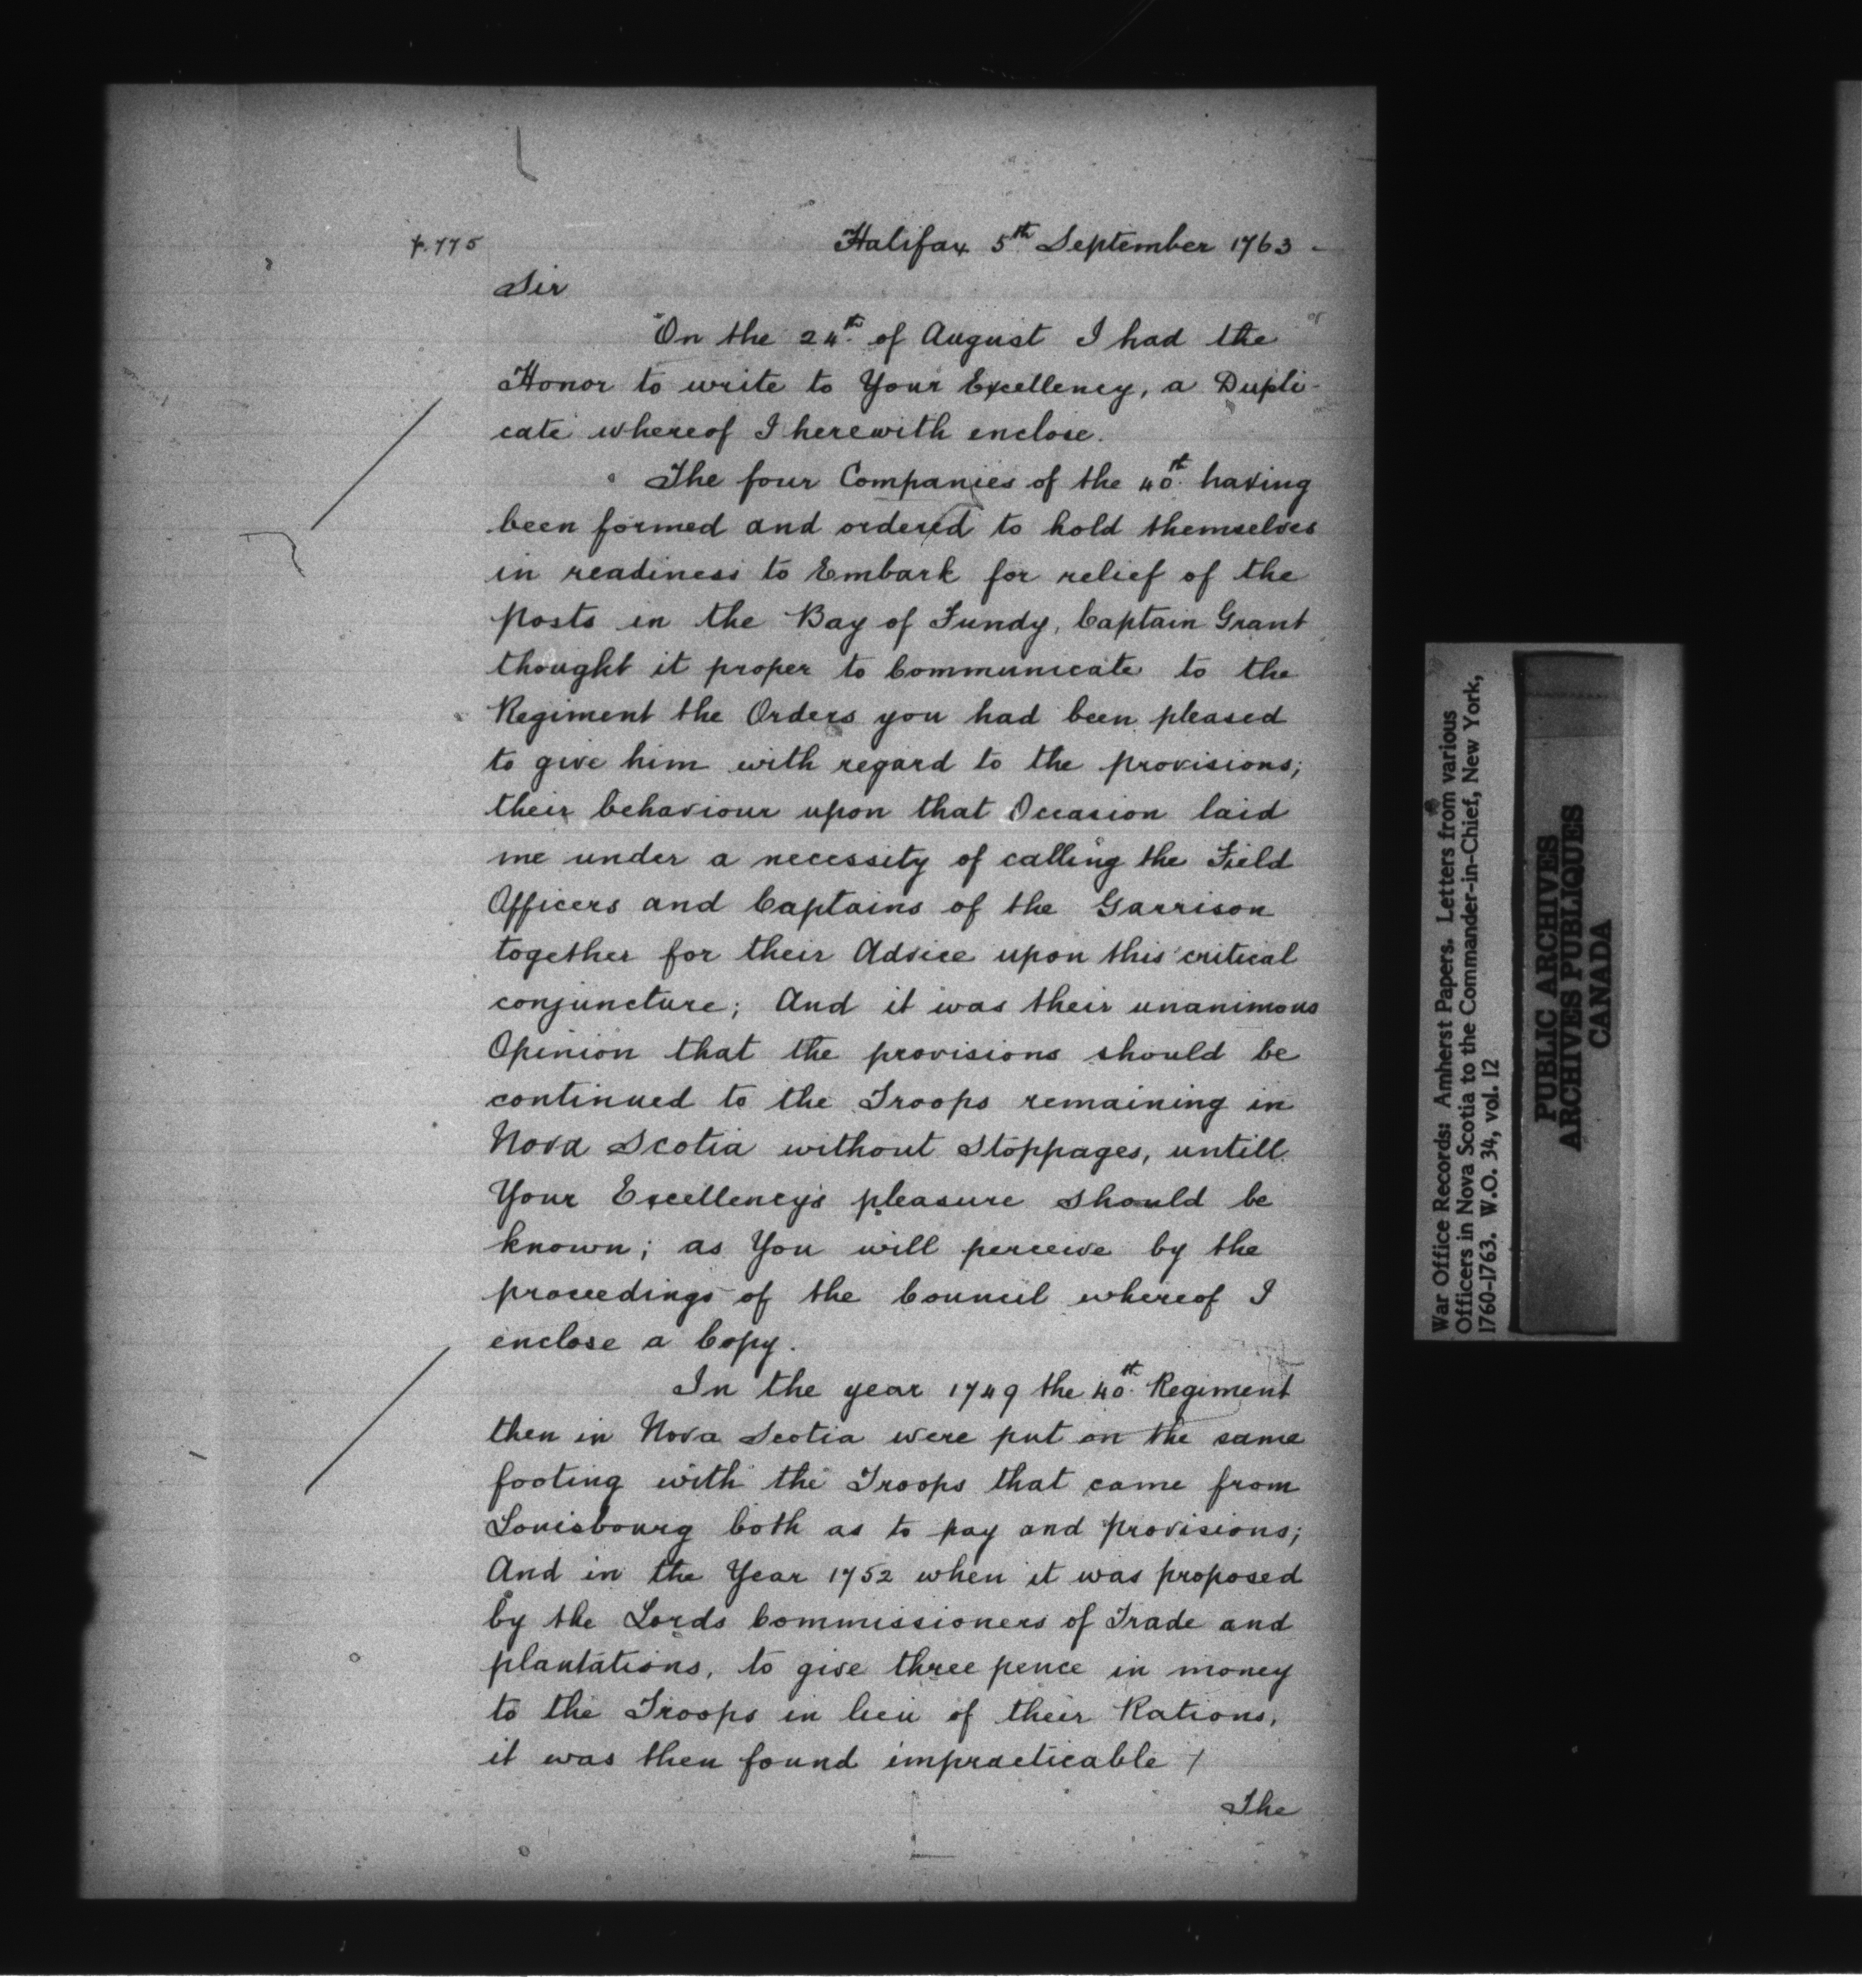 p. 775
Halifax 5th September 1763 -
Sir
On the 24th. of August I had the
Honor to write to Your Excellency, a Dupli-
cate whereof I herewith enclose.
The four Companies of the 40th. having
been formed and ordered to hold themselves
in readiness to Embark for relief of the
posts in the Bay of Fundy, Captain Grant
thought it proper to Communicate to the
Regiment the Orders you had been pleased
to give him with regard to the provisions;
their behaviour upon that Occasion laid
me under a necessity of calling the Field
Officers and Captains of the Garrison
together for their Advice upon this critical
conjuncture; And it was their unanimous
Opinion that the provisions should be
continued to the Troops remaining in
Nova Scotia without Stoppages, untill
Your Excellency's pleasure should be
known; as You will perceive by the
proceedings of the Council whereof I
enclose a Copy.
In the year 1749 the 40th. Regiment
then in Nova Scotia were put on the same
footing with the Troops that came from
Louisbourg both as to pay and provisions;
And in the Year 1752 when it was proposed
by the Lords Commissioners of Trade and
plantations, to give three pence in money
to the Troops in lieu of their Rations,
it was then found impracticable /
The
War Office Records: Amherst Papers. Letters from various
Officers in Nova Scotia to the Commander-in-Chief, New York,
1760-1763. W.O. 34, vol. 12
PUBLIC ARCHIVES
ARCHIVES PUBLIQUES
CANADA